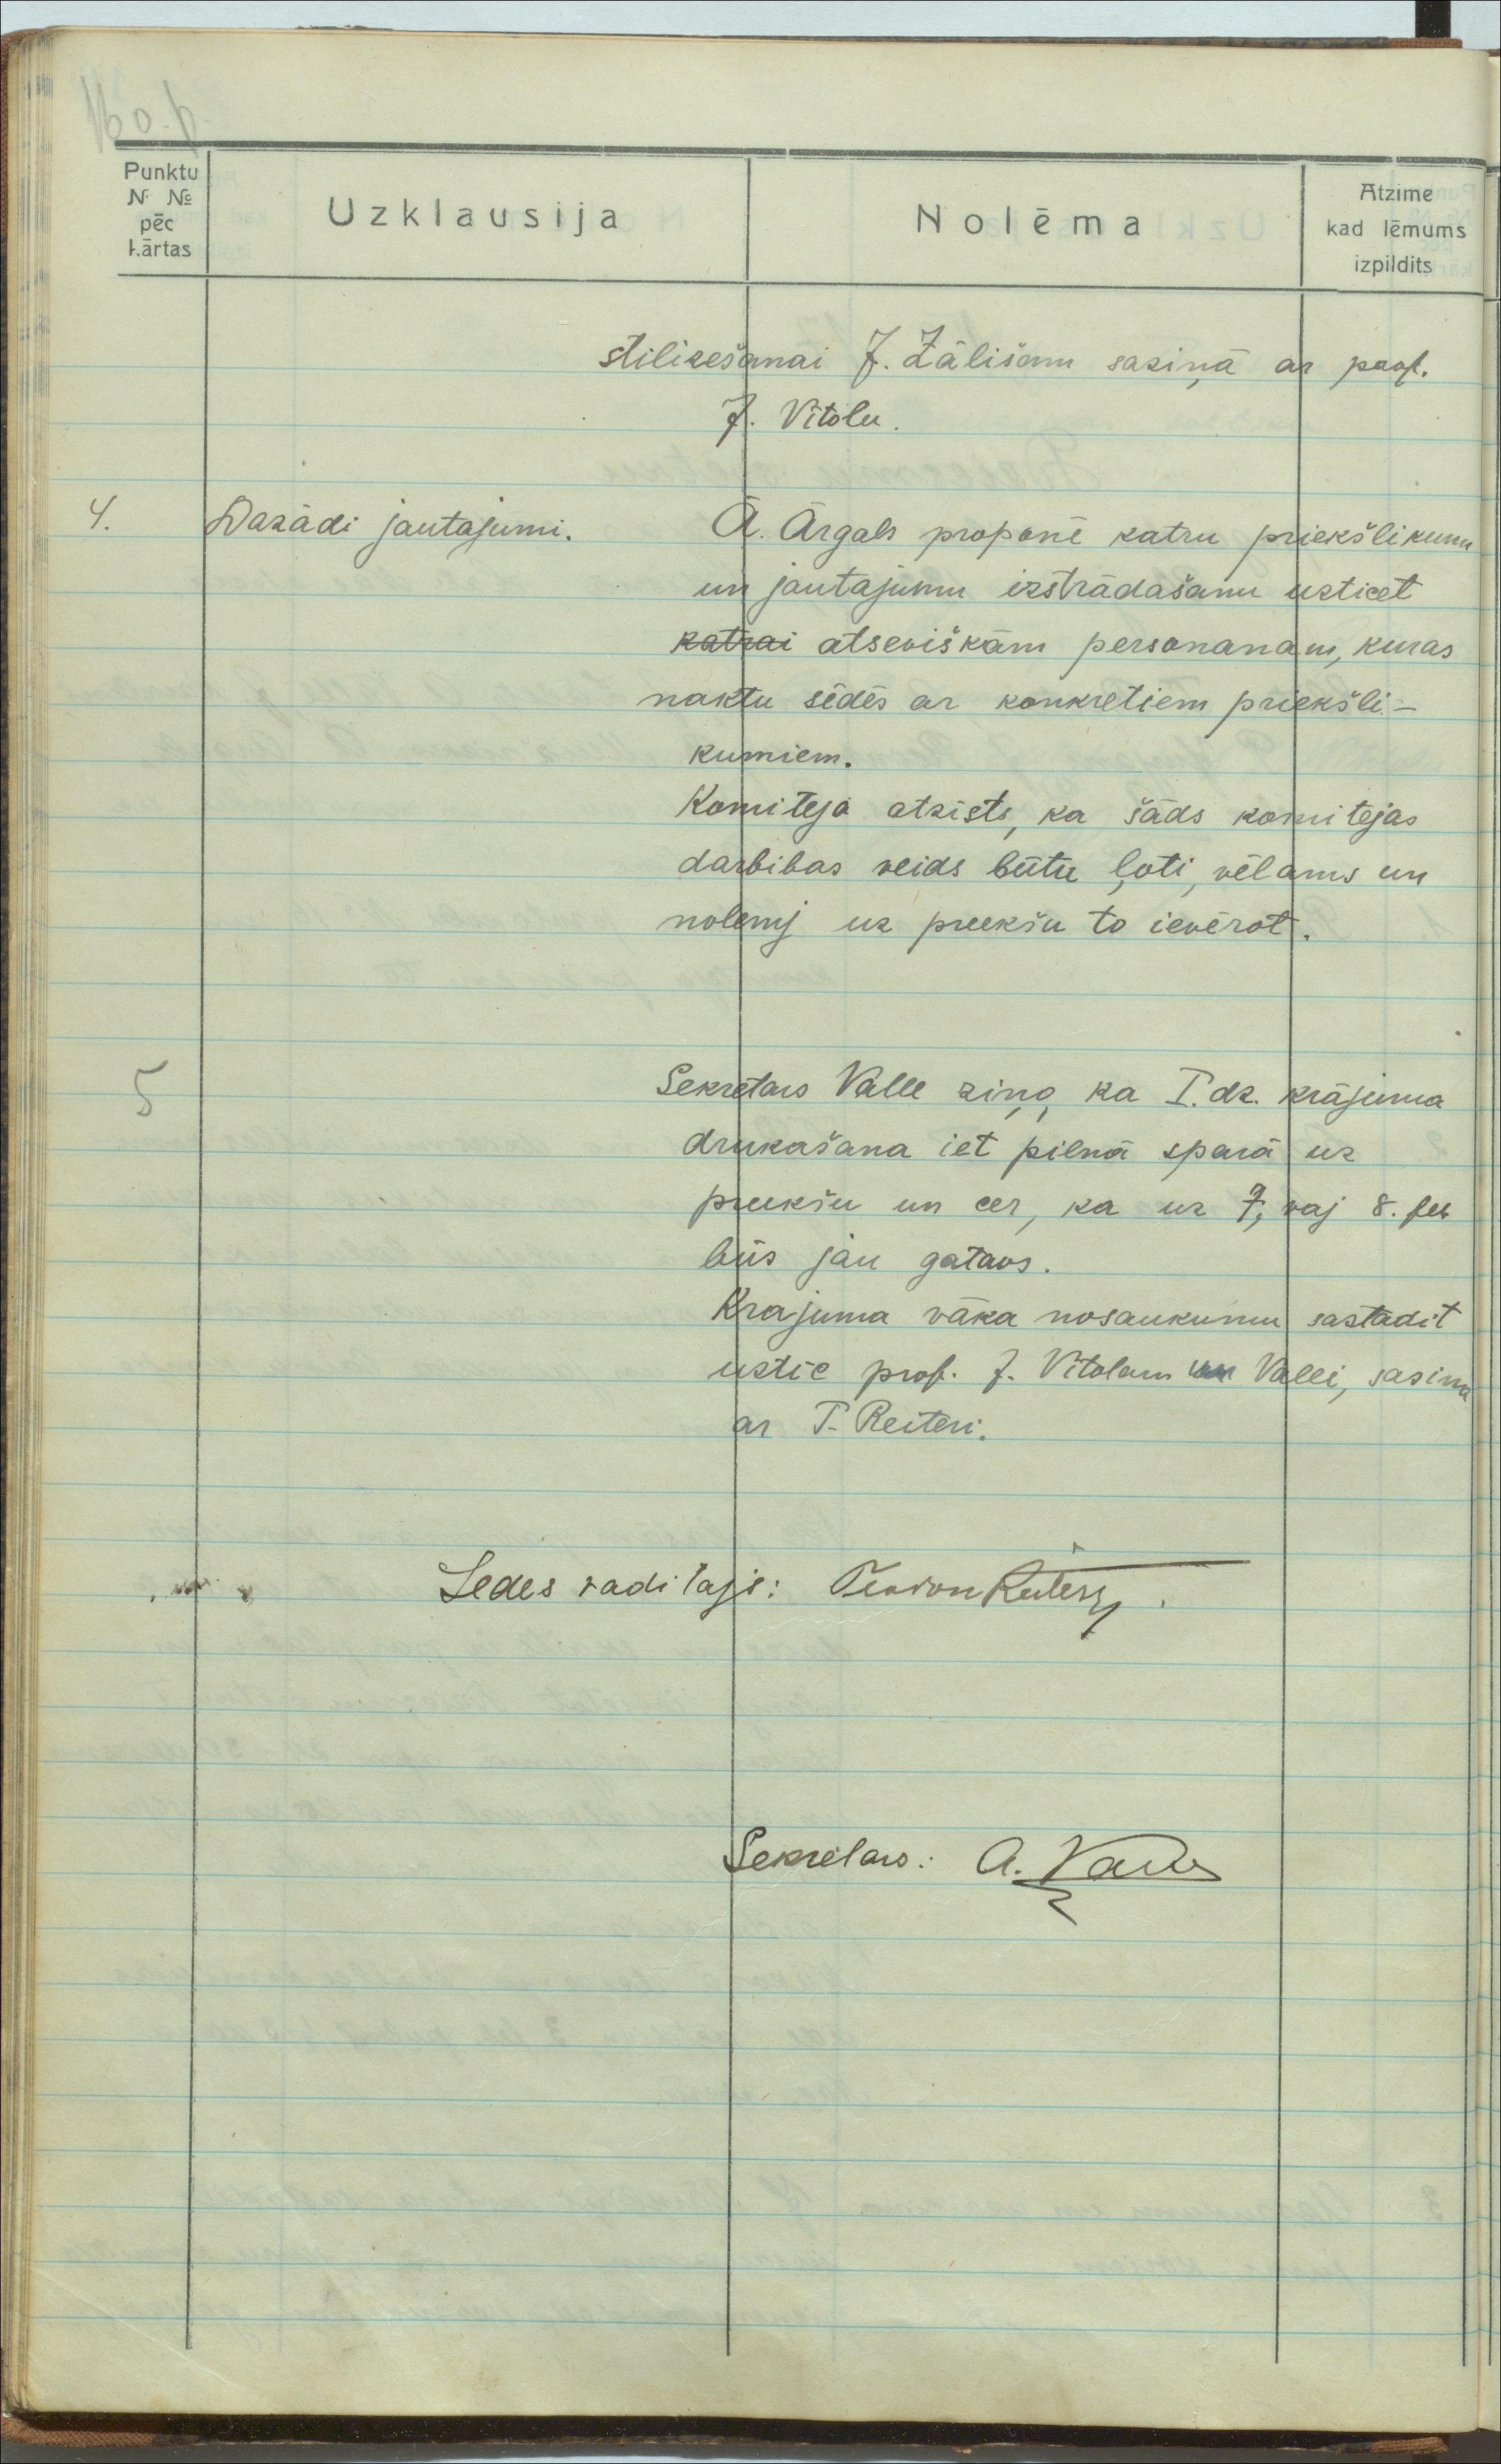 16 o.p.
Punktu
№ №
pēc
kārtas
Uzklausija
Nolēma
Atzime
kad lēmums
izpildits
stilizešanai J. Zālišam saziņā ar prof.
J. Vītolu.
4. Dazādi jautajumi. A. Ārgals proponē katru priekšlikumu
un jautājumu izstrādašanu uzticet
katrai atseviškām personanam, kuras
naktu sēdēs ar konkretiem priekšli-
kumiem.
Komiteja atzists, ka šāds komitējas
darbibas veids būtu ļoti, vēlams un
nolemj uz preekšu to ievērot.
5 Sekretars Valle ziņo, ka I. dz. krājuma
drukašana iet pilnā sparā uz
preekšu un cer, ka uz 7, vaj 8. feb
būs jau gatavs.
Krajuma vāka nosaukumu sastādit
uztic prof. J. Vītolam un Vallei, sasina
ar T. Reiteri.
Sedes vaditajs: Teodor Reiters.
Sekretars: A. Valle